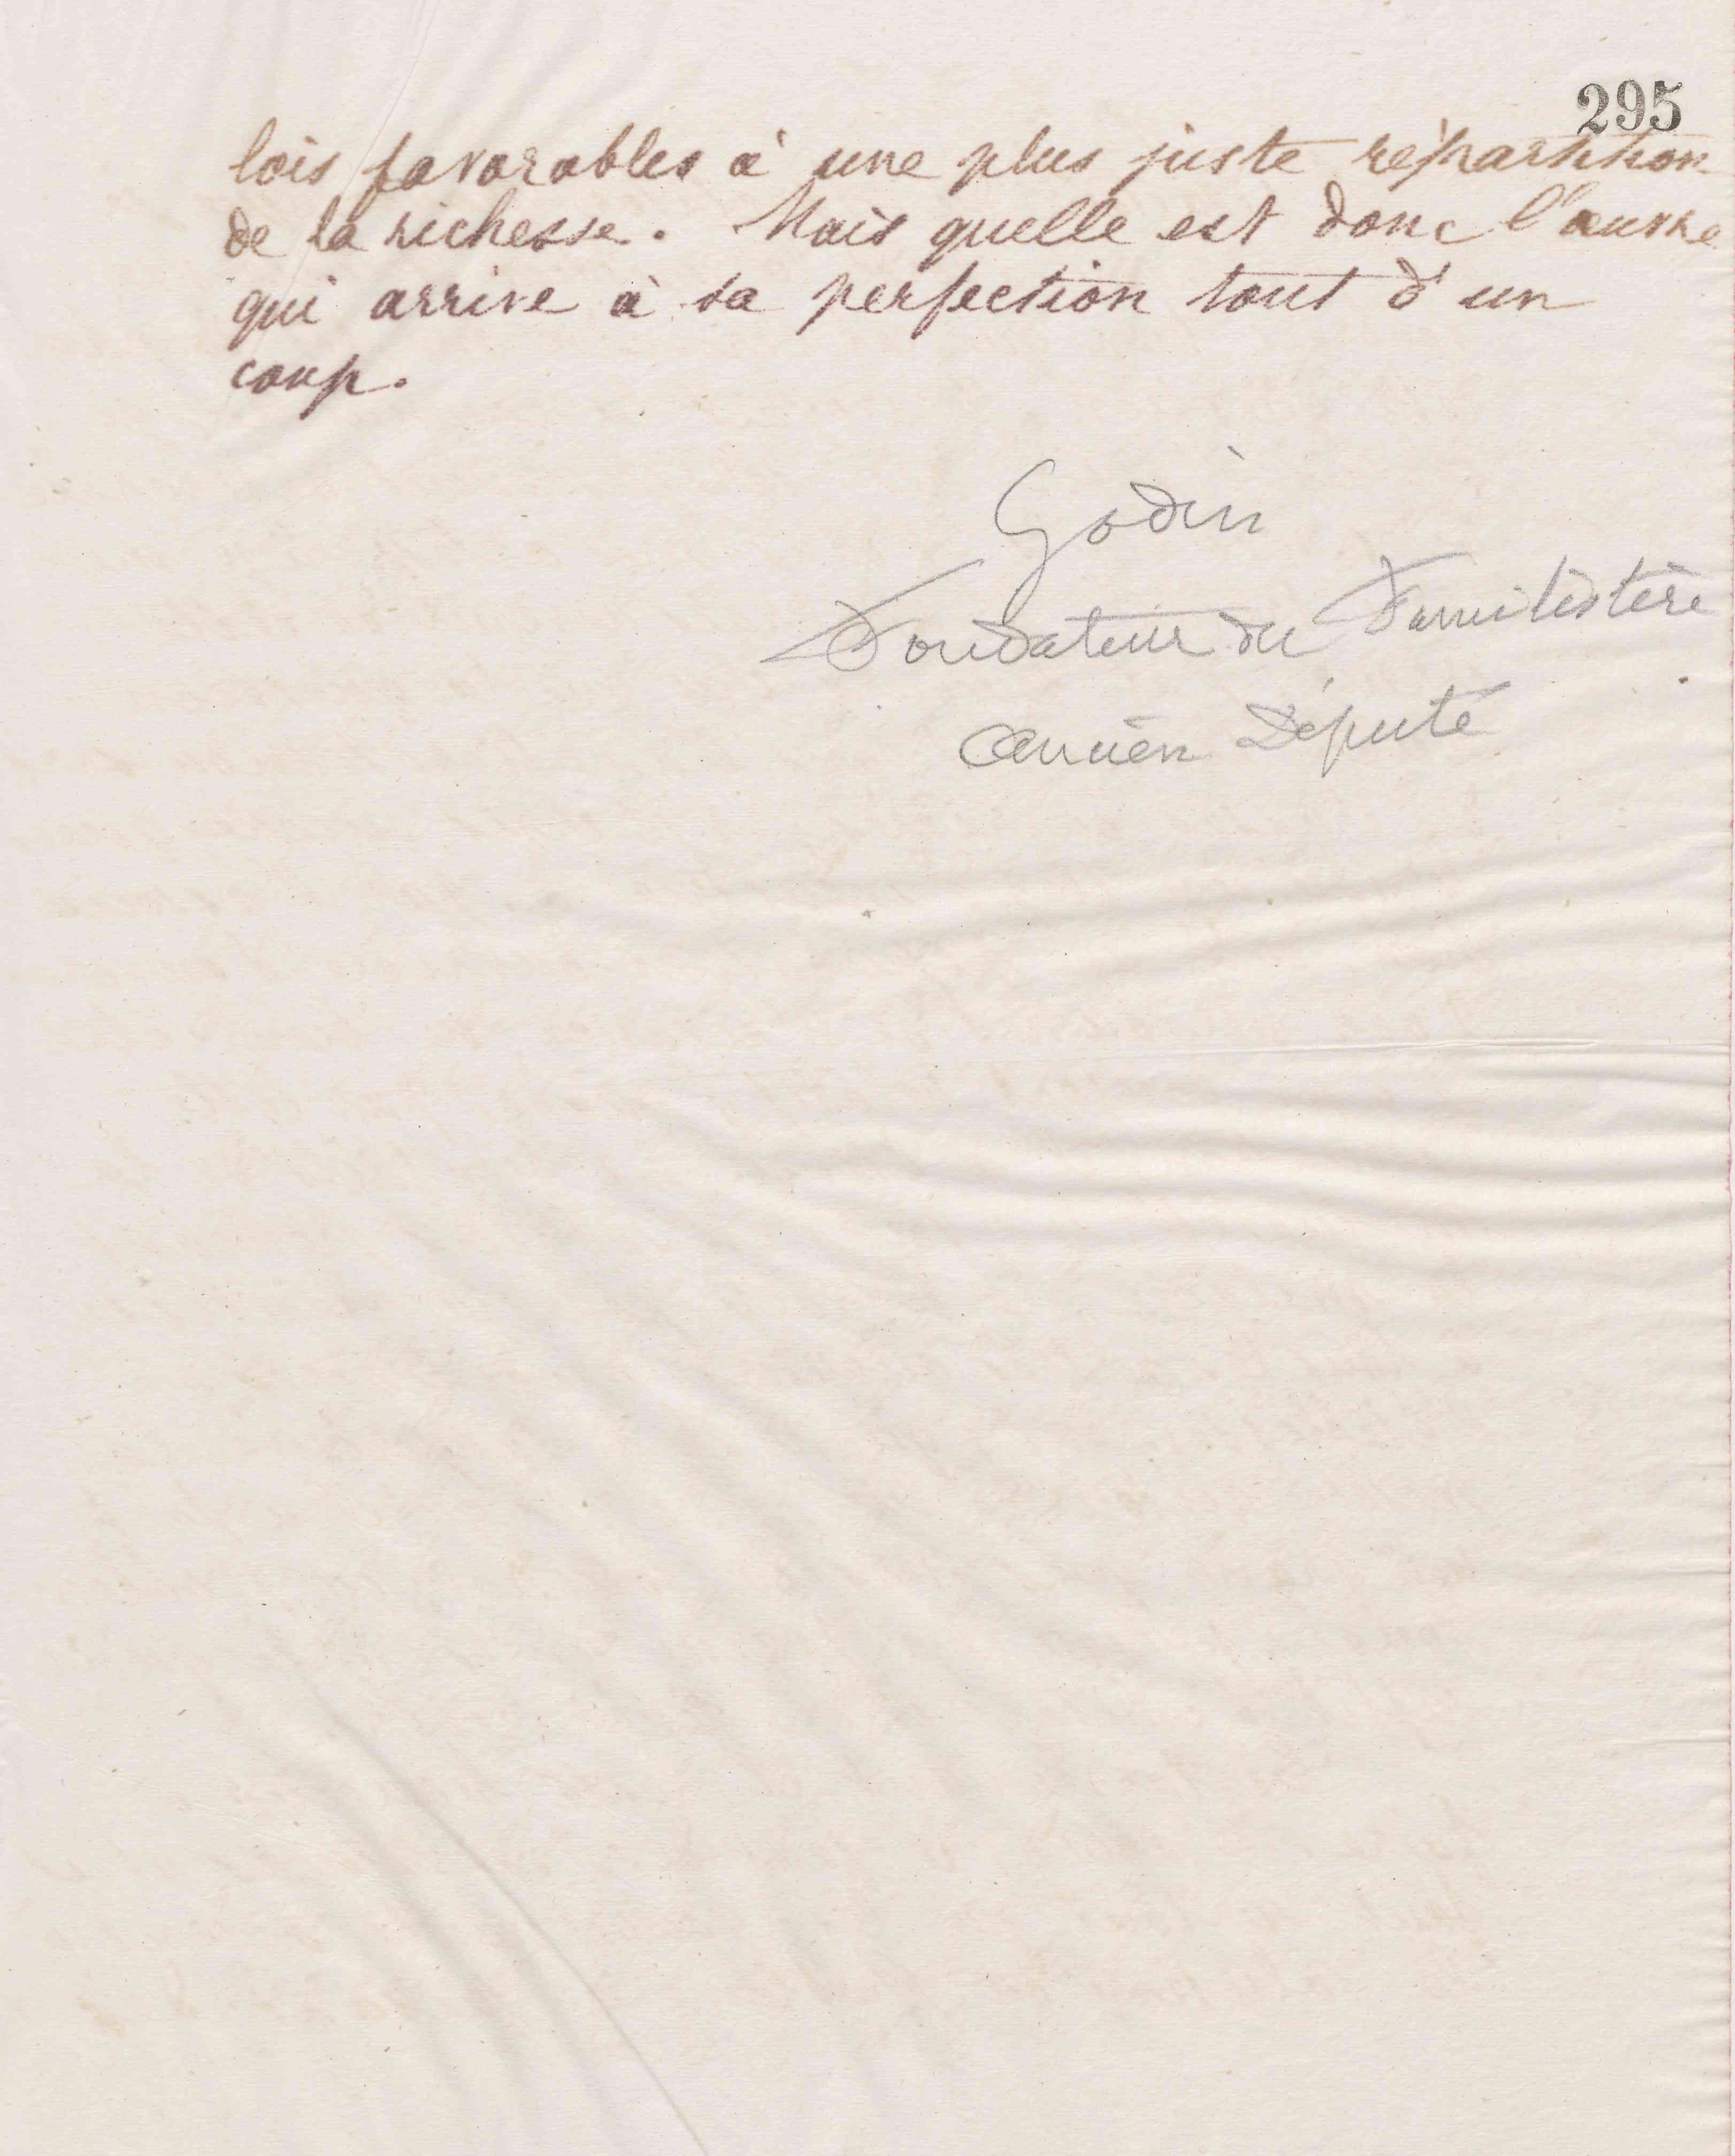 295
lois favorables à une plus juste répartition
de la richesse. Mais quelle est donc l'œuvre
qui arrive à sa perfection tout d'un
coup.
Godin
Fondateur du Familistère
Ancien Député